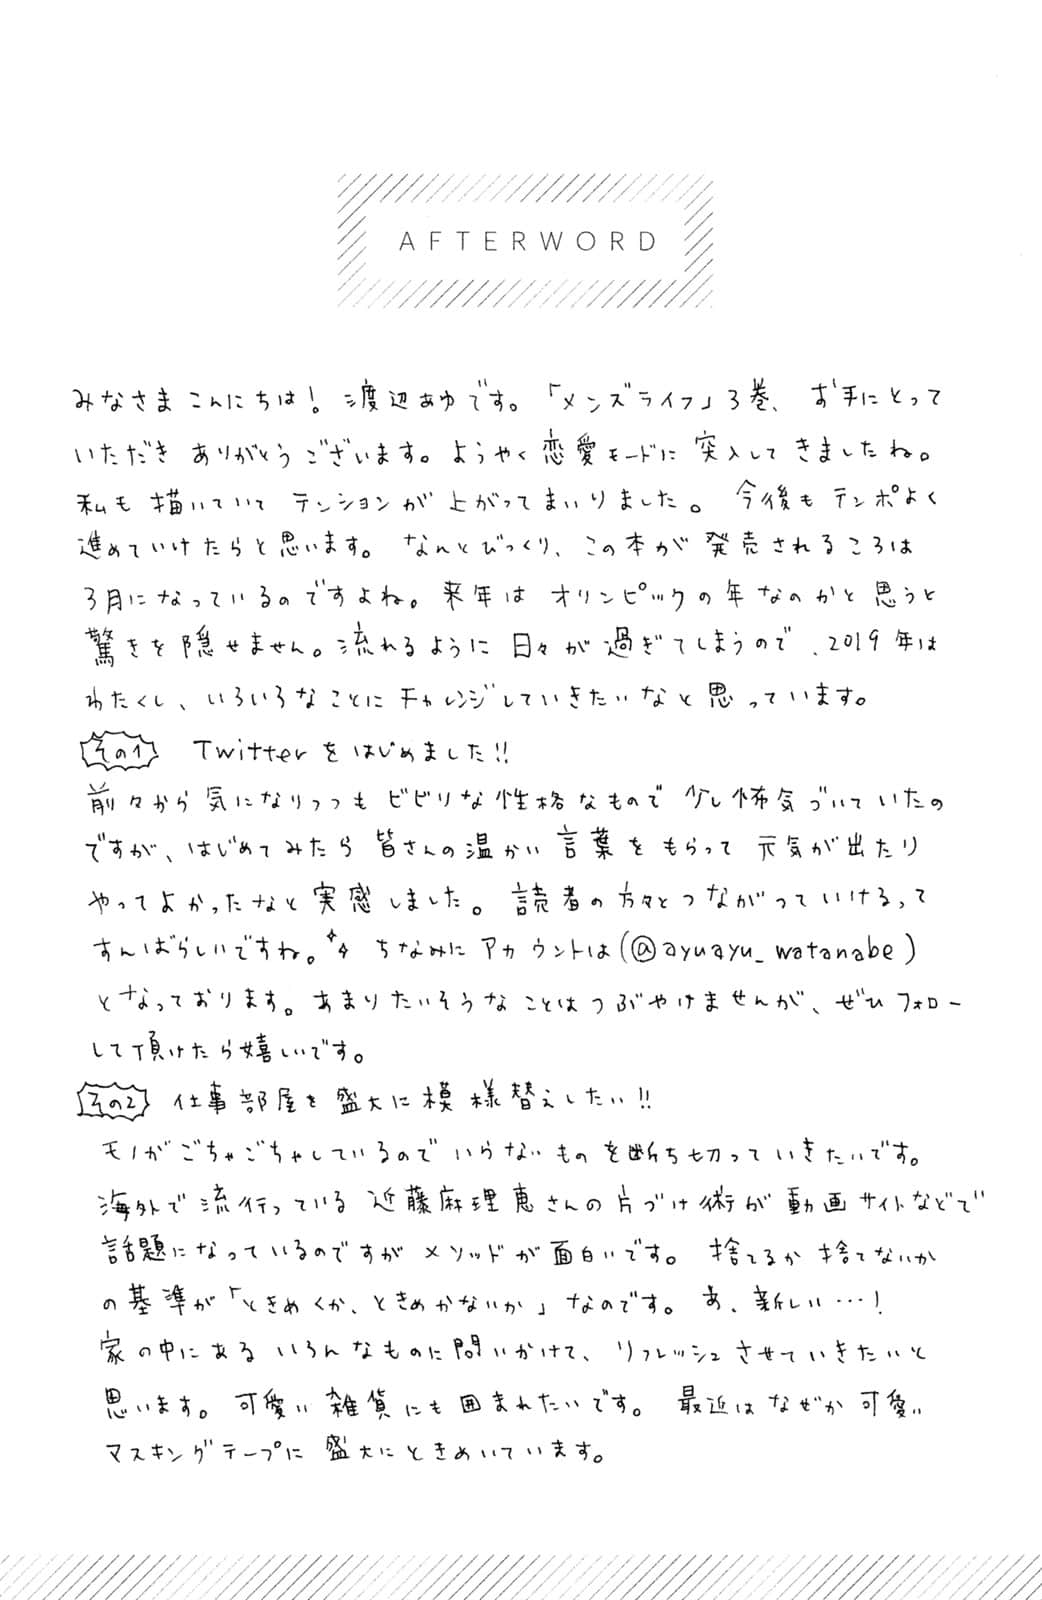 AFTERWORD
みなさまこんにちは！渡辺あゆです。「メンズライフ」3巻、お手にとって
いただきありがとうございます。ようやく恋愛モードに突入してきましたね。
私も描いていてテンションが上がってまいりました。今後もテンポよく
進めていけたらと思います。なんとびっくり、この本が発売されるころは
3月になっているのですよね。来年はオリンピックの年なのかと思うと
驚きを隠せません。流れるように日々が過ぎてしまうので、2019年は
わたくし、いろいろなことにチャレンジしていきたいなと思っています。
その1 Twitterをはじめました!!
前々から気になりつつもビビリな性格なもので少し怖気づいていたの
ですが、はじめてみたら皆さんの温かい言葉をもらって元気が出たり
やってよかったなと実感しました。読者の方々とつながっていけるって
すんばらしいですね。ちなみにアカウントは(@ayuayu_watanabe)
となっております。あまりたいそうなことはつぶやけませんが、ぜひフォロー
して頂けたら嬉しいです。
その2 仕事部屋を盛大に模様替えしたい!!
モノがごちゃごちゃしているのでいらないものを断ち切っていきたいです。
海外で流行っている近藤麻理恵さんの片づけ術が動画サイトなどで
話題になっているのですがメソッドが面白いです。捨てるか捨てないか
の基準が「ときめくか、ときめかないか」なのです。あ、新しい…！
家の中にあるいろんなものに問いかけて、リフレッシュさせていきたいと
思います。可愛い雑貨にも囲まれたいです。最近はなぜか可愛い
マスキングテープに盛大にときめいています。